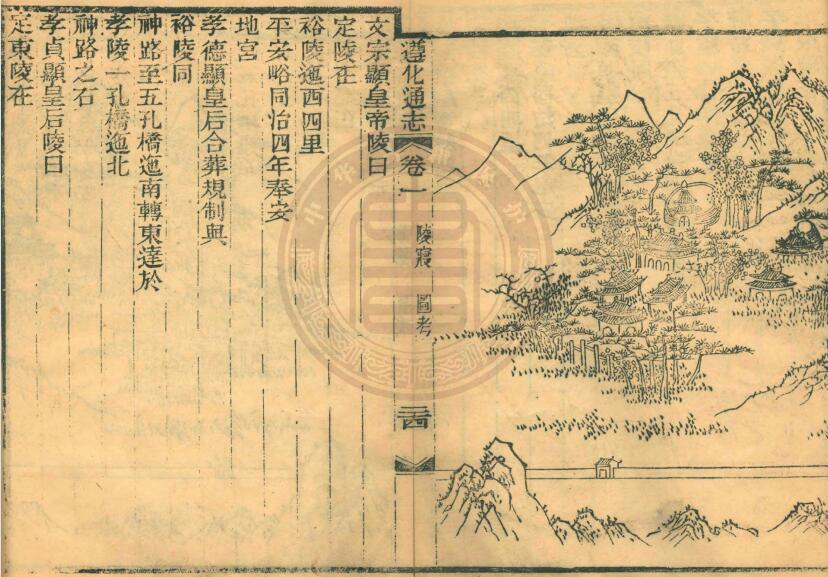 遵化通志 卷一 陵寢 圖考 二十四
文宗顯皇帝陵曰
定陵在
裕陵迤西四里
平安峪同治四年奉安
地宮
孝德顯皇后合葬規制與
裕陵同
神路至五孔橋迤南轉東達於
孝陵一孔橋迤北
神路之右
孝貞顯皇后陵曰
定東陵在